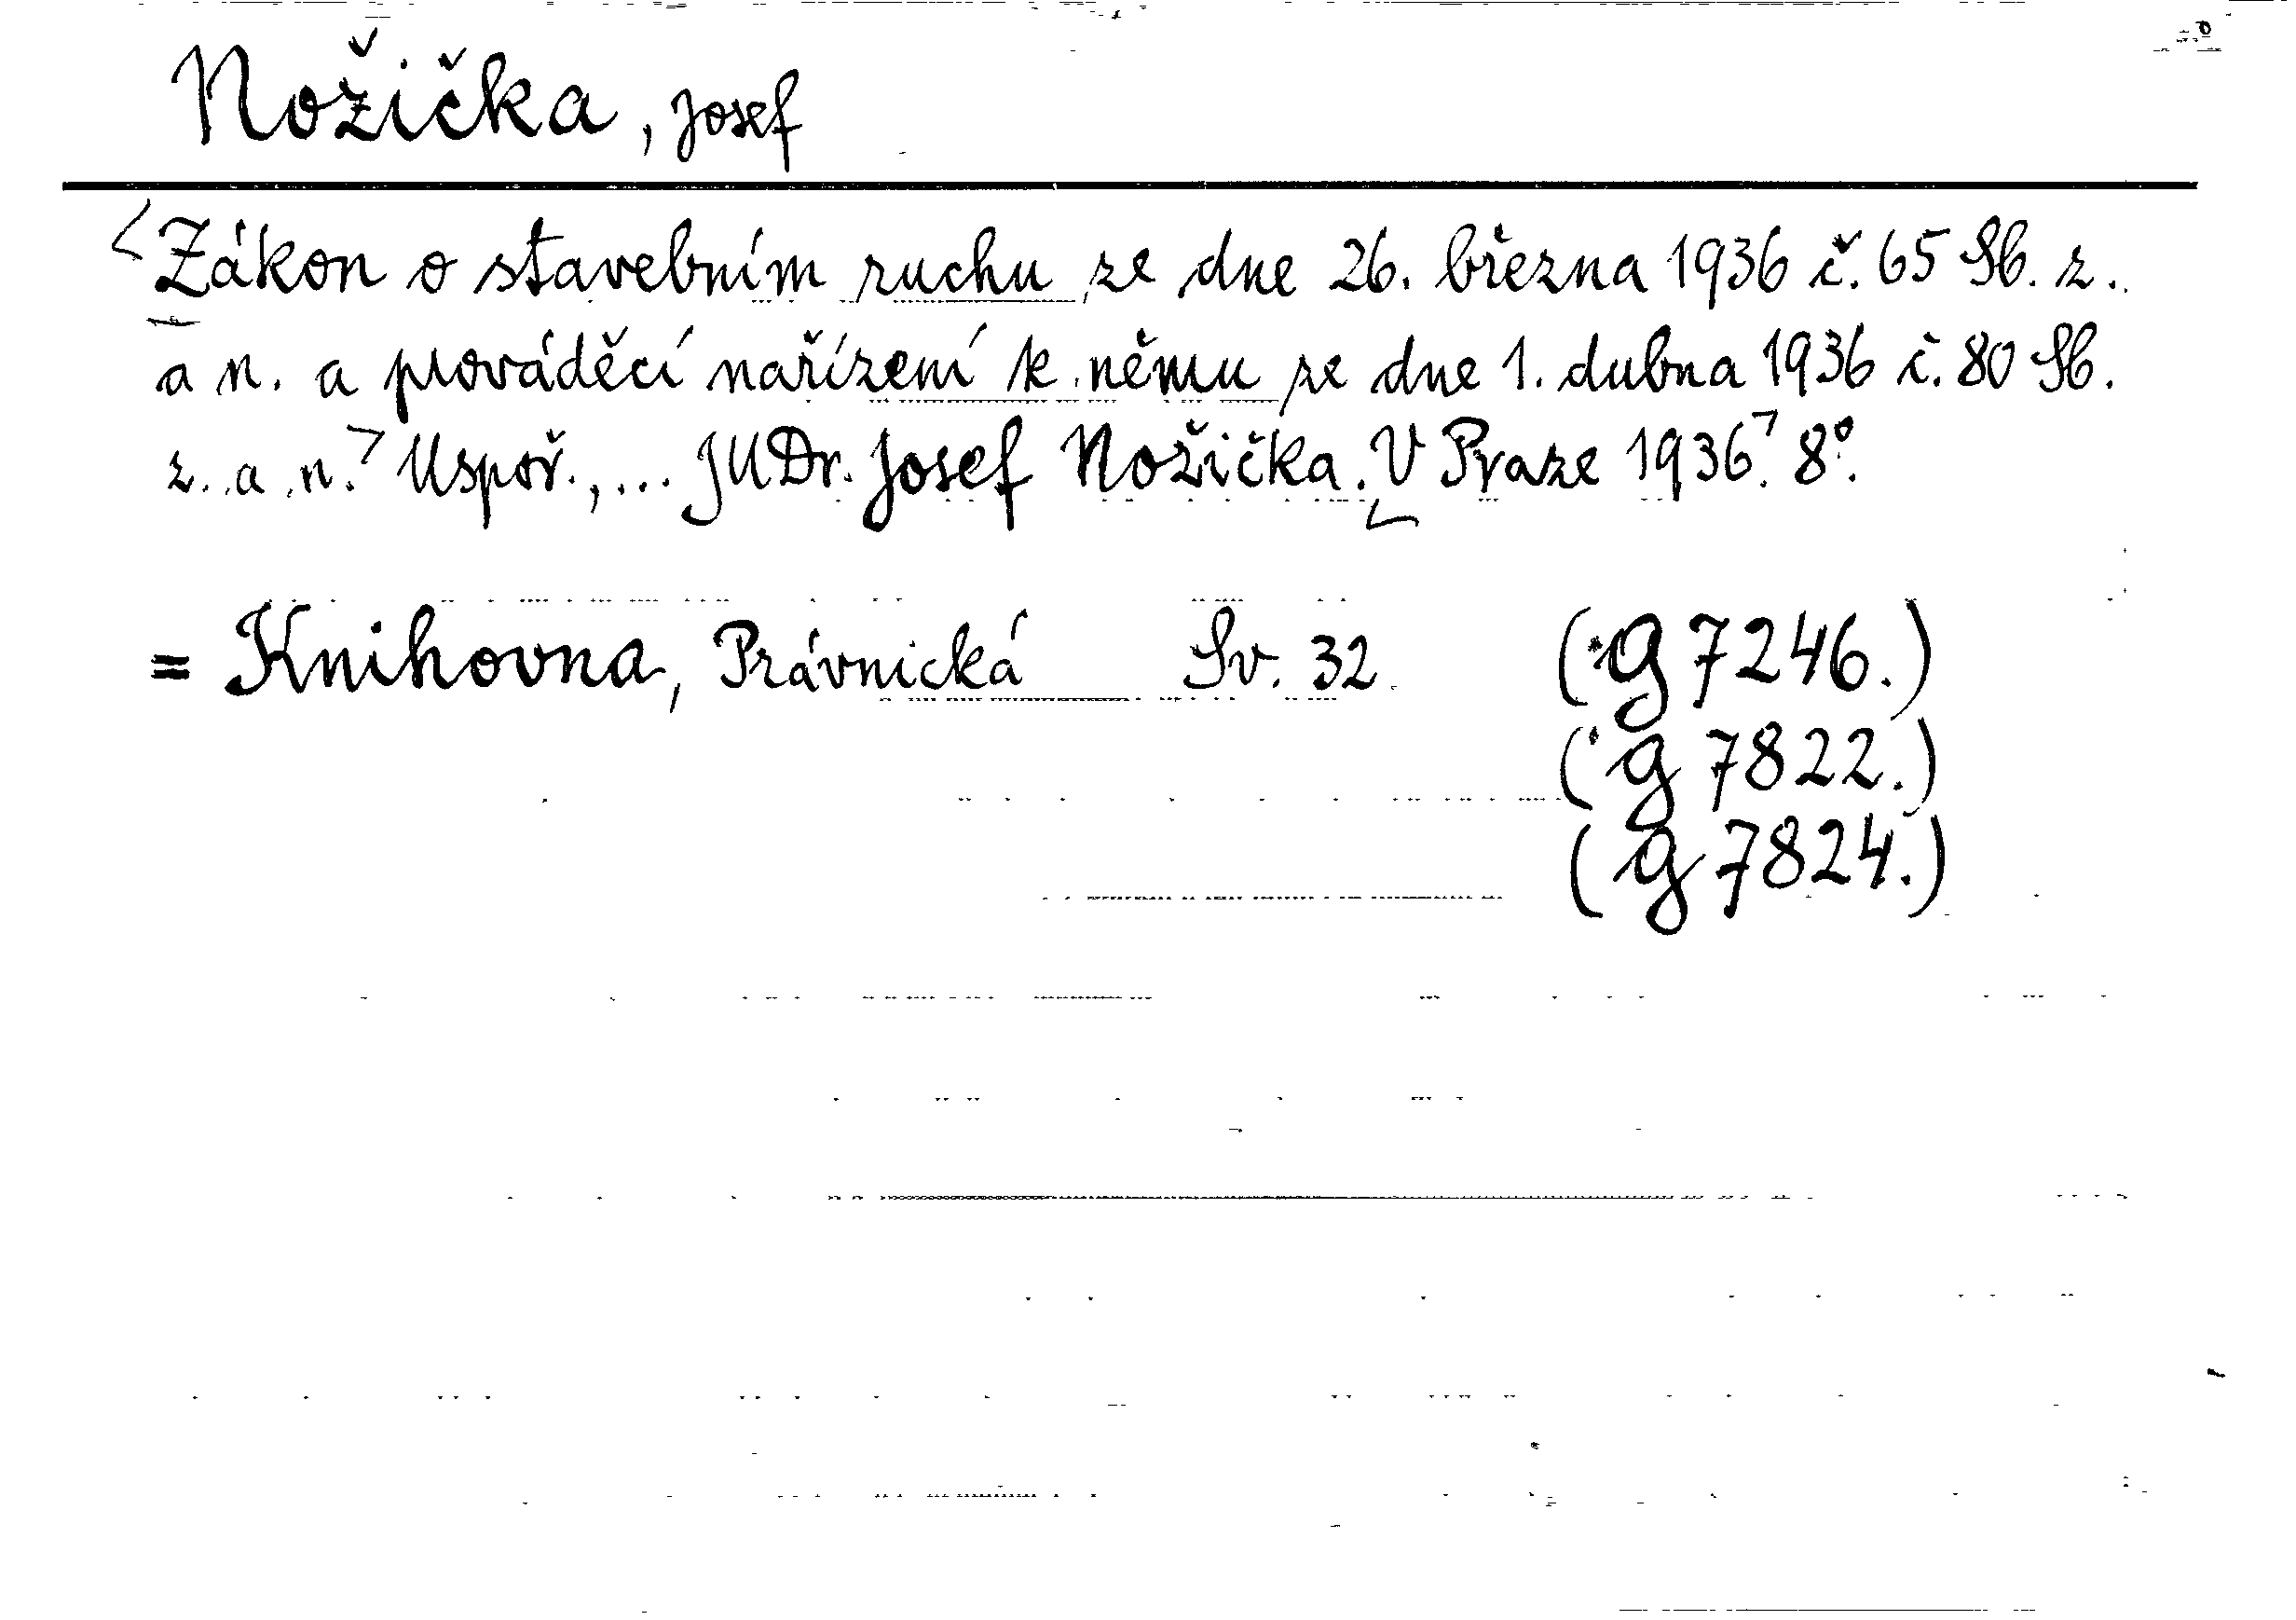 Nožička, Josef
Zákon o stavebním ruchu ze dne 26. března 1936 č. 65 Sb. z.
a n. a prováděcí nařízení k němu ze dne 1. dubna 1936 č. 80 Sb.
z. a n. Uspoř., ... JUDr. Josef Nožička. V Praze 1936. 8°.
= Knihovna, Právnická Sv. 32 (g 7246.)
(g 7822.)
(g 7824.)